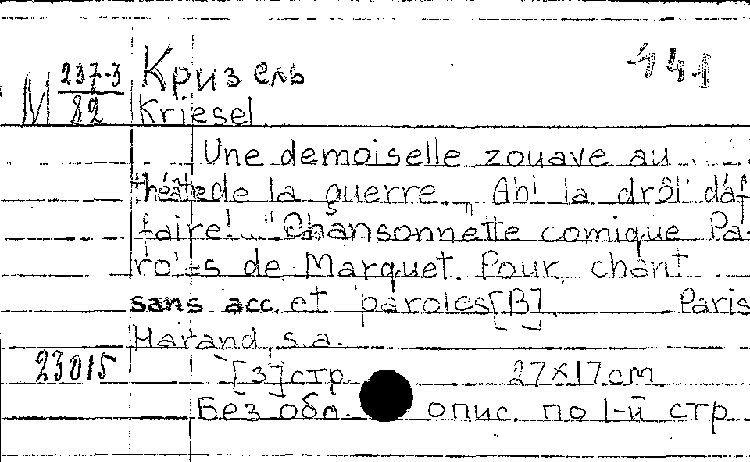 М 237-3/82 Кризель 441
Kriesel
Une demoiselle zouave au
théâtre de la guerre. "Ah! la drôl' d'af
faire!.." Chansonnette comique Pa-
roles de Marquet. Pour chant
sans acc. et paroles [B]. Paris
Marand, s.a.
23015 [3] стр 27×17 cm
Без обл. опис. по 1-й стр